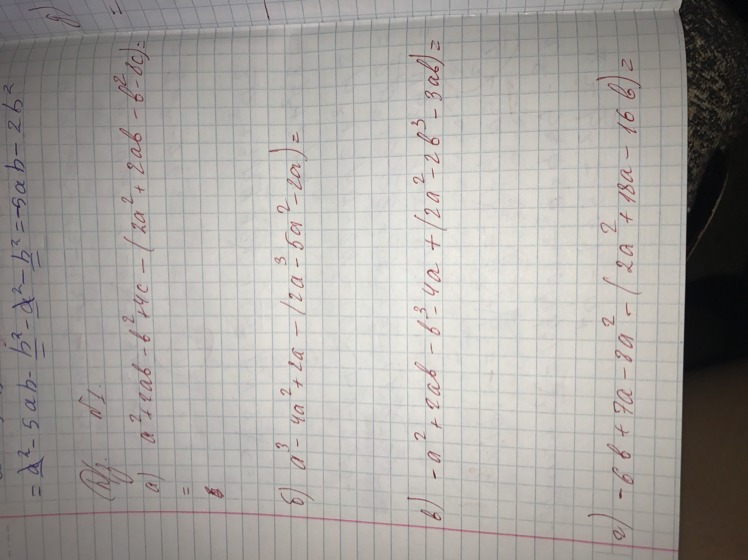 = a² - 5ab - b² - a² - b² = -5ab - 2b²
д)
=
№1.
а) a² + 2ab - b² + 4c - (2a² + 2ab - b² - 8c) =
=
б) a³ - 4a² + 2a - (2a³ - 5a² - 2a) =
в) -a² + 2ab - b³ - 4a + (2a² - 2b³ - 3ab) =
г) -6b + 7a - 8a² - (2a² + 18a - 16b) =